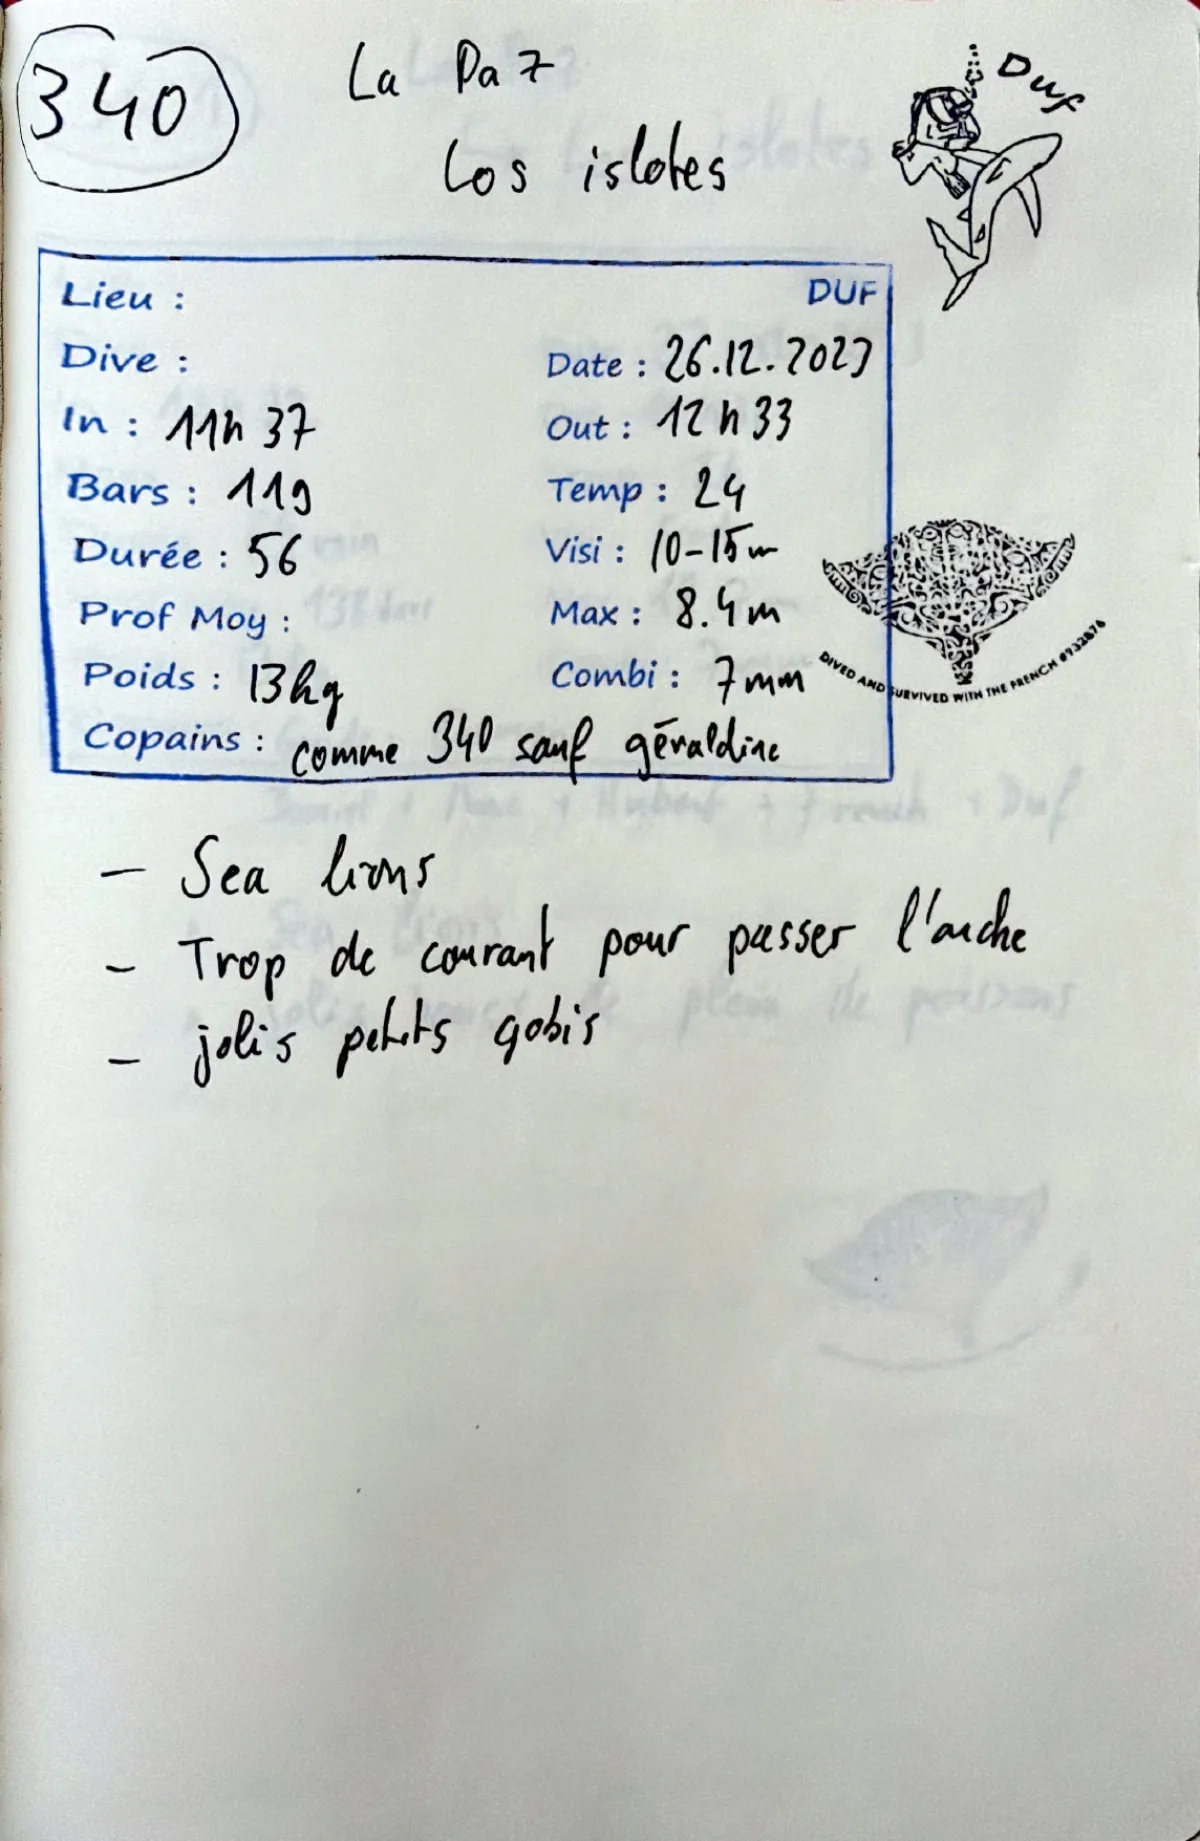 340
La Paz
Los islotes
Duf
Lieu :
DUF
Dive :
Date : 26.12.2023
In : 11h37
Out : 12h33
Bars : 119
Temp : 24
Durée : 56
Visi : 10-15m
Prof Moy :
Max : 8.4m
Poids : 13kg
Combi : 7mm
Copains : comme 340 sauf géraldine
DIVED AND SURVIVED WITH THE FRENCH
- Sea lions
- Trop de courant pour passer l'arche
- jolis petits gobis